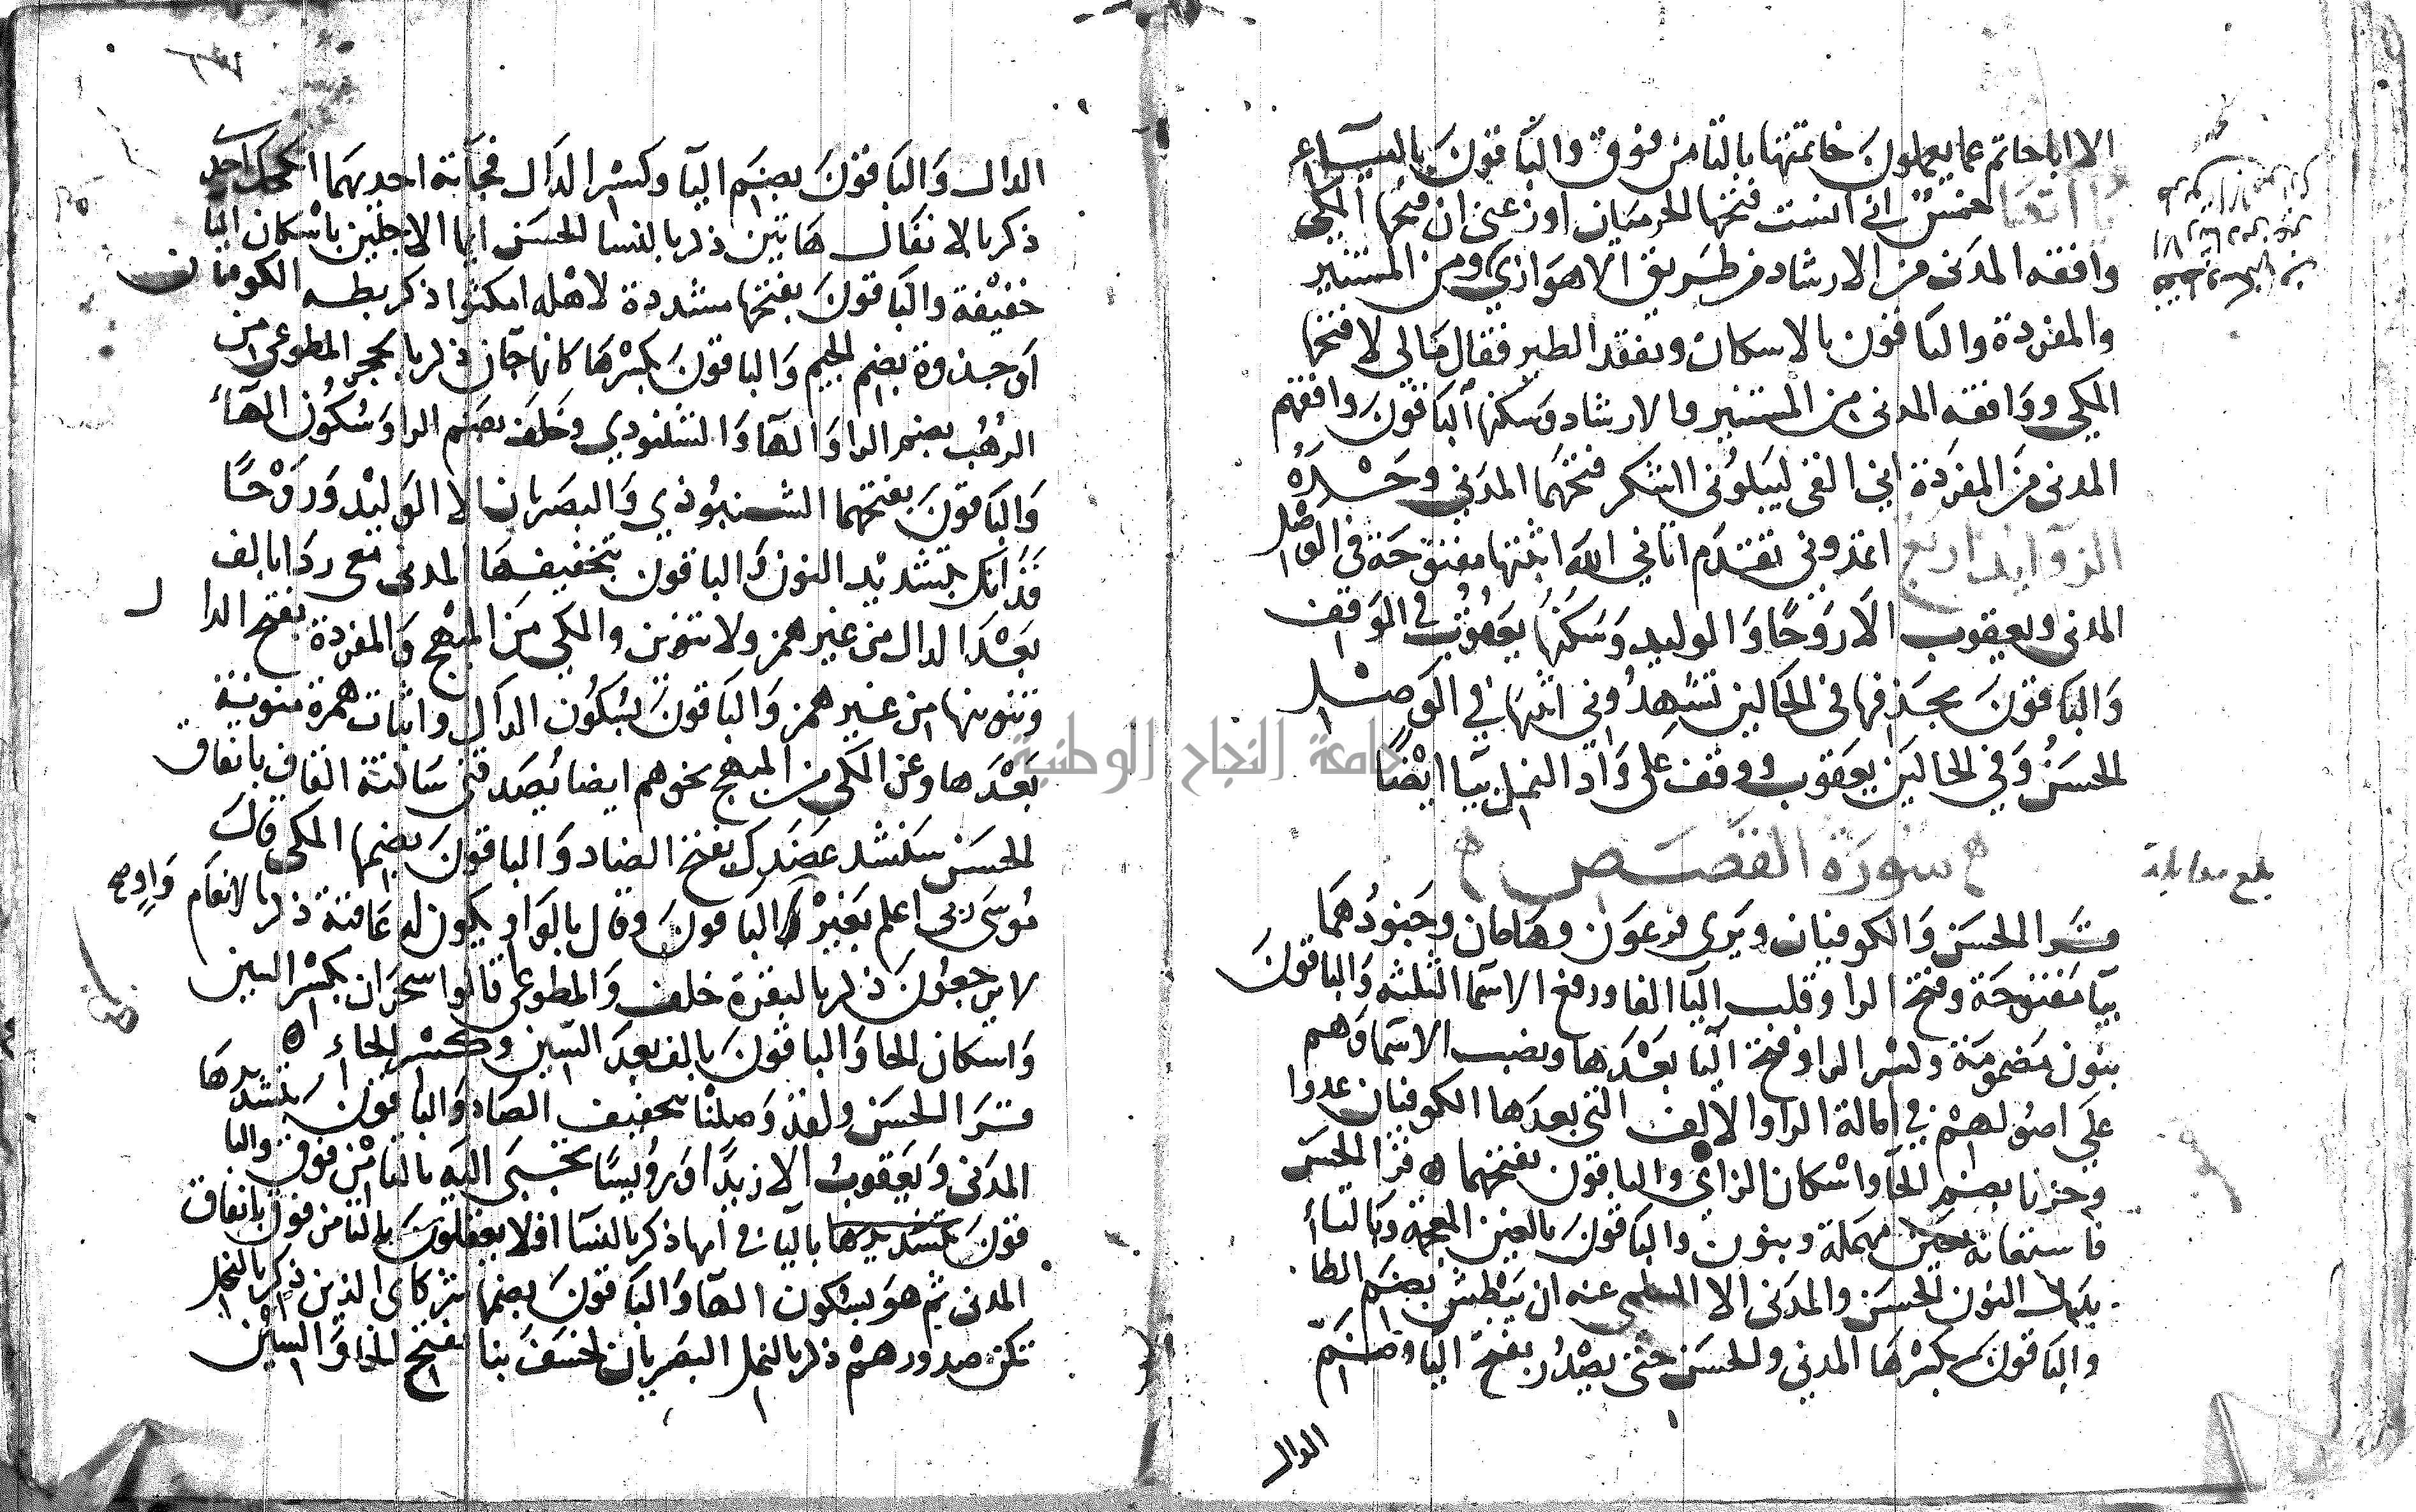 الا ابا حاتم عما يعملون خاتمتها بالتا من فوق والباقون بالياء
يا اتها خمس اني انست فتحها الحرميان اوزعني ان فتحها المكي
وافقه المدني من الارشاد من طريق الاهوازي ومن المستنير
والمفردة والباقون بالاسكان وتفقد الطير فقال مالي لا فتحها
المكي ووافقه المدني من المستنير والارشاد وسكنها الباقون وافقهم
المدني من المفردة اني القي ليبلوني ااشكر فتحهما المدني وحده
الزوايد اربع اتمدوني تقدم اتاني الله اثبتها مفتوحة في الوصل
المدني ويعقوب الا روحا والوليد وسكنها يعقوب في الوقف
والباقون بحذفها في الحالين تشهدوني اثبتها في الوصل
الحسن وفي الحالين يعقوب ووقف على واد النمل بيا ايضا
سورة القصص
بلغ مقابلة
قرا الحسن والكوفيان ويرى فرعون وهامان وجنودهما
بيا مفتوحة وفتح الرا وقلب اليا الفا ورفع الاسما الثلثه والباقون
بنون مضمومة وكسر الرا وفتح اليا بعدها ونصب الاسما وهم
على اصولهم في امالة الرا والالف التي بعدها الكوفيان عدوا
وحزنا بضم الحا واسكان الزاي والباقون بفتحهما ه قرا الحسن
فاستعانه بعين مهملة وبنون والباقون بالغين المعجمة وبالثاء
بدل النون الحسن والمدني الا عنه ان يبطش بضم الطا
والباقون بكسرها المدني والحسن حتى يصدر بفتح اليا وضم
الدال
الدال والباقون بضم اليا وكسر الدال فجاته احديهما انكحك احدى
ذكر بالانفال هاتين ذكر بالنسا الحسن ايما الاجلين باسكان اليا
خفيفة والباقون بفتحها مشددة لاهله امكثوا ذكر بطه الكوفيان
او جذوة بضم الجيم والباقون بكسرها كانها جآن ذكر بالحجر المطوعي من
الرهب بضم الرا والها والشنبوذي وخلف بضم الرا وسكون الهاء
والباقون بفتحهما الشنبوذي والبصريان الا الوليد وروحا
فذانك بتشديد النون والباقون بتخفيفها المدني معي ردا بالف
بعد الدال من غير همز ولا تنوين والمكي من المبهج والمفردة بفتح الدال
وتنوينها من غير همز والباقون بسكون الدال واثبات همزة منونة
بعدها وعن المكي من المبهج نحوهم ايضا يصدقني ساكنة القاف باتفاق
الحسن سنشد عضدك بفتح الضاد والباقون بضمها المكي قال
موسى ربي اعلم بغير واو الباقون وقال بالواو يكون له عاقبة ذكر بالانعام
لا يرجعون ذكر بالبقرة خلف والمطوعي قالوا سحران بكسر السين
واسكان الحا والباقون بالف بعد السين وكسر الحاء ه
قرا الحسن ولقد وصلنا بتخفيف الصاد والباقون بتشديدها
المدني ويعقوب الا زيدا ورويسا تجبى اليه بالتا من فوق والبا
قون بالياء في امها ذكر بالنسا افلا يعقلون بالتا من فوق باتفاق
المدني ثم هو بسكون الها والباقون بضمها شركاي الذين ذكر بالنحل
تكن صدورهم ذكر بالنمل البصريان لخسف بنا بفتح الخا والسين
جامعة النجاح الوطنية